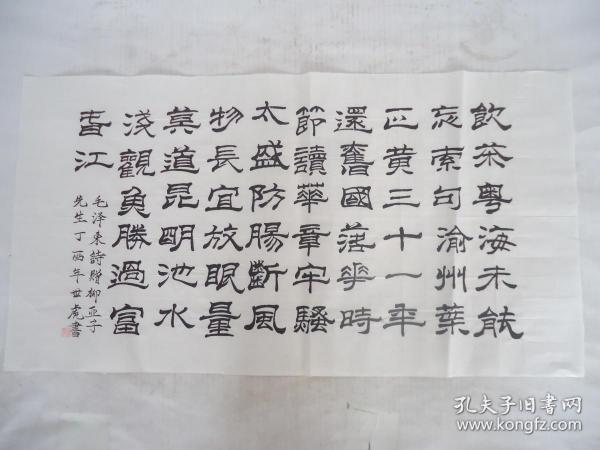 飲茶粤海未能
忘索句渝州葉
正黄三十一年
還舊國落華時
節讀華章牢騷
太盛防腸斷風
物長宜放眼量
莫道昆明池水
淺觀魚勝過富
春江
毛泽東詩贈柳亚子
先生丁酉年世虎書
孔夫子旧书网
www.kongfz.com